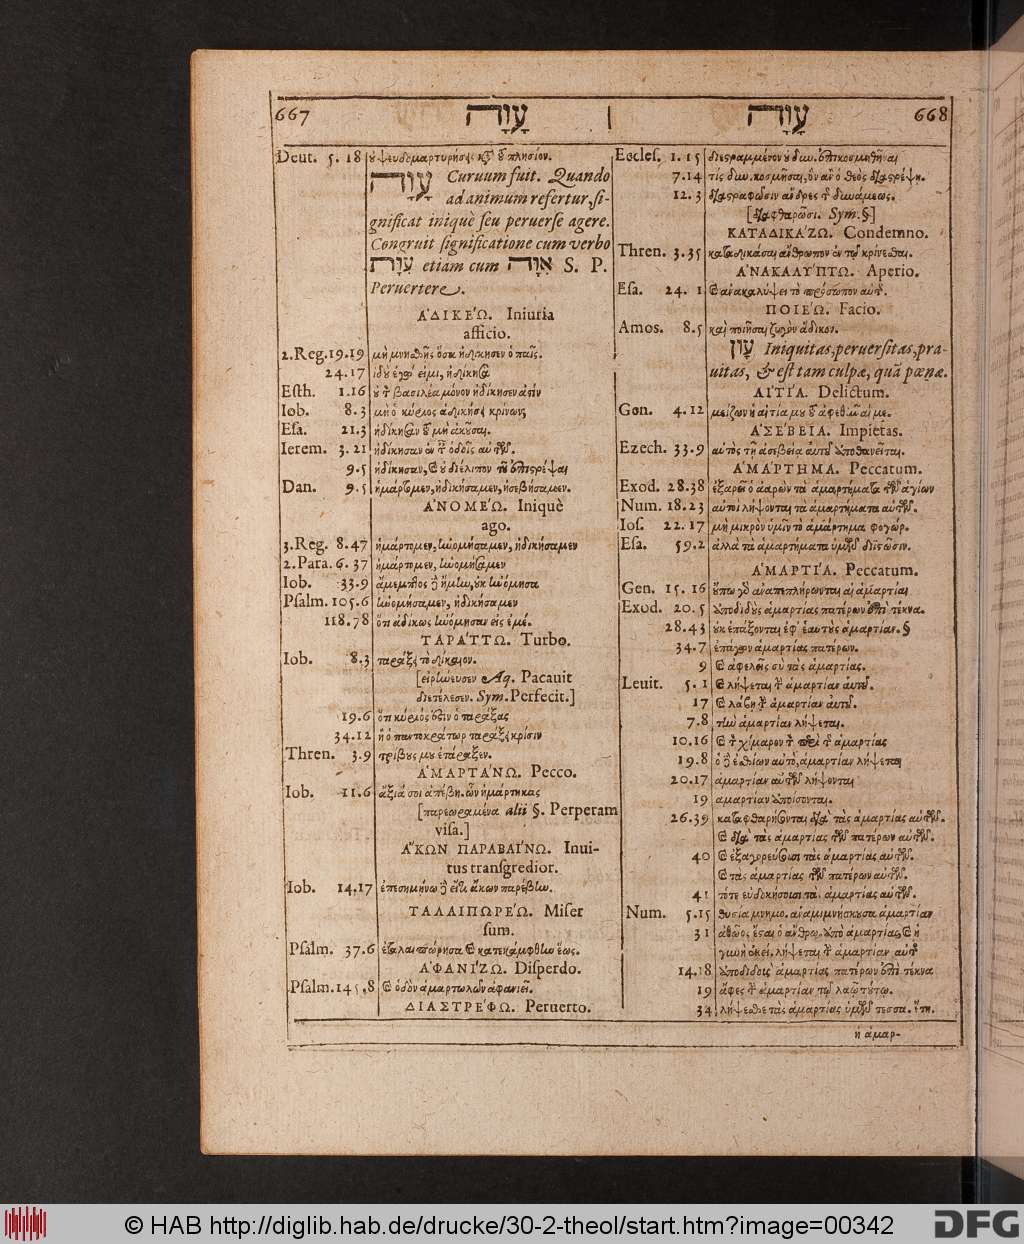 667 עָוָה ו עָוָה 668
Deut. 5. 18 ȣ ψευδομαρτυρήσεις κατὰ τοῦ πλησίον.
עָוָה Curuum fuit. Quando
ad animum refertur, si-
gnificat iniquè seu peruerse agere.
Congruit significatione cum verbo
עָוָת etiam cum אִוָּה S. P.
Peruertere.
ἈΔΙΚΕΏ. Iniuria
afficio.
2. Reg. 19. 19 μὴ μνηθῇς ὅσα ἠδίκησεν ὁ παῖς.
24. 17 ἰδού ἐγώ εἰμι, ἠδίκησα
Esth. 1. 16 οὐ τὸν βασιλέα μόνον ἠδίκησεν ἀστίν
Iob. 8. 3 μὴ ὁ κύριος ἀδικήσει κρίνων;
Esa. 21. 3 ἠδίκησαν τοῦ μὴ ἀκοῦσαι.
Ierem. 3. 21 ἠδίκησαν ἐν ταῖς ὁδοῖς αὐτῶν.
9. 5 ἠδίκησαν, καὶ οὐ διέλιπον τοῦ ἐπιστρέψαι
Dan. 9. 5 ἡμάρτομεν, ἠδικήσαμεν, ἠσεβήσαμεν.
ἈΝΟΜΕΏ. Iniquè
ago.
3. Reg. 8. 47 ἡμάρτομεν, ἠνομήσαμεν, ἠδικήσαμεν
2. Para. 6. 37 ἡμάρτομεν, ἠνομήσαμεν
Iob. 33. 9 ἄμεμπτος δὲ ἤμην, οὐκ ἠνόμησα
Psalm. 105. 6 ἠνομήσαμεν, ἠδικήσαμεν
118. 78 ὅτι ἀδίκως ἠνόμησαν εἰς ἐμέ.
ΤΑΡΆΤΤΩ. Turbo.
Iob. 8. 3 ταράξει τὸ δίκαιον.
[εἰρίωευσεν Aq. Pacauit
διετέλεσεν. Sym. Perfecit.]
19. 6 ὅτι κύριός ἐστιν ὁ ταράξας
34. 12 ἢ ὁ παντοκράτωρ ταράξει κρίσιν
Thren. 3. 9 τρίβους μου ἐτάραξεν.
ἉΜΑΡΤΆΝΩ. Pecco.
Iob. 11. 6 ἄξιά σοι ἀπέβη. ὧν ἡμάρτηκας
[παρεωραμένα alii §. Perperam
visa.]
ἌΚΩΝ ΠΑΡΑΒΑΊΝΩ. Inui-
tus transgredior.
Iob. 14. 17 ἐπεσημήνω δὲ εἴτι ἄκων παρέβην.
ΤΑΛΑΙΠΩΡΕΏ. Miser
sum.
Psalm. 37. 6 ἐταλαιπώρησα καὶ κατεκάμφθην ἕως.
ἈΦΑΝΊΖΩ. Disperdo.
Psalm. 145. 8 καὶ ὁδὸν ἁμαρτωλῶν ἀφανιεῖ.
ΔΙΑΣΤΡΈΦΩ. Peruerto.
Eccles. 1. 15 διεστραμμένον οὐ δυν. ἐπικοσμηθῆναι
7. 14 τίς δυν. κοσμῆσαι, ὃν ἂν ὁ θεὸς διαστρέψῃ.
12. 3 διαστραφῶσιν ἄνδρες τῆς δυνάμεως.
[διαφθαρῶσι. Sym. §]
ΚΑΤΑΔΙΚΆΖΩ. Condemno.
Thren. 3. 35 καταδικάσαι ἄνθρωπον ἐν τῷ κρίνεσθαι.
ἈΝΑΚΑΛΎΠΤΩ. Aperio.
Esa. 24. 1 καὶ ἀνακαλύψει τὸ πρόσωπον αὐτῆς.
ΠΟΙΕΏ. Facio.
Amos. 8. 5 καὶ ποιῆσαι ζυγὸν ἄδικον.
עָוֹן Iniquitas, peruersitas, pra-
uitas, & est tam culpæ, quã pœnæ.
ΑἸΤΊΑ. Delictum.
Gen. 4. 12 μείζων ἡ αἰτία μου τοῦ ἀφεθῆναί με.
ἈΣΈΒΕΙΑ. Impietas.
Ezech. 33. 9 αὐτὸς τῇ ἀσεβείᾳ αὐτοῦ ἀποθανεῖται.
ἉΜΆΡΤΗΜΑ. Peccatum.
Exod. 28. 38 ἐξαρεῖ ὁ ἀαρὼν τὰ ἁμαρτήματα τῶν ἁγίων
Num. 18. 23 αὐτοὶ λήψονται τὰ ἁμαρτήματα αὐτῶν.
Ios. 22. 17 μὴ μικρὸν ὑμῖν τὸ ἁμάρτημα φογώρ.
Esa. 59. 2 ἀλλὰ τὰ ἁμαρτήματα ὑμῶν διϊστῶσιν.
ἉΜΑΡΤΊΑ. Peccatum.
Gen. 15. 16 οὔπω γὰρ ἀναπεπλήρωνται αἱ ἁμαρτίαι
Exod. 20. 5 ἀποδιδοὺς ἁμαρτίας πατέρων ἐπὶ τέκνα.
28. 43 οὐκ ἐπάξονται ἐφ᾽ ἑαυτοὺς ἁμαρτίαν. §
34. 7 ἐπάγων ἁμαρτίας πατέρων.
9 καὶ ἀφελεῖς σὺ τὰς ἁμαρτίας.
Leuit. 5. 1 καὶ λήψεται τὴν ἁμαρτίαν αὐτοῦ.
17 καὶ λάβῃ τὴν ἁμαρτίαν αὐτοῦ.
7. 8 τὴν ἁμαρτίαν λήψεται.
10. 16 καὶ τὸν χίμαρον τὸν περὶ τῆς ἁμαρτίας
19. 8 ὁ δὲ ἐσθίων αὐτὸ, ἁμαρτίαν λήψεται
20. 17 ἁμαρτίαν αὐτῶν λήψονται
19 ἁμαρτίαν ἀποίσονται.
26. 39 καταφθαρήσονται διὰ τὰς ἁμαρτίας αὐτῶν.
καὶ διὰ τὰς ἁμαρτίας τῶν πατέρων αὐτῶν.
40 καὶ ἐξαγορεύσουσι τὰς ἁμαρτίας αὐτῶν.
καὶ τὰς ἁμαρτίας τῶν πατέρων αὐτῶν.
41 τότε εὐδοκήσουσι τὰς ἁμαρτίας αὐτῶν.
Num. 5. 15 θυσία μνημο. ἀναμιμνήσκουσα ἁμαρτίαν
31 ἀθῶος ἔσται ὁ ἄνθρω. ἀπὸ ἁμαρτίας, καὶ ἡ
γυνὴ ἐκεί. λήψεται τὴν ἁμαρτίαν αὐτῆς
14. 18 ἀποδιδοὺς ἁμαρτίας πατέρων ἐπὶ τέκνα
19 ἄφες τὴν ἁμαρτίαν τῷ λαῷ τούτῳ.
34 λήψεσθε τὰς ἁμαρτίας ὑμῶν τεσσα. ἔτη.
ἡ ἁμαρ-
© HAB http://diglib.hab.de/drucke/30-2-theol/start.htm?image=00342
DFG